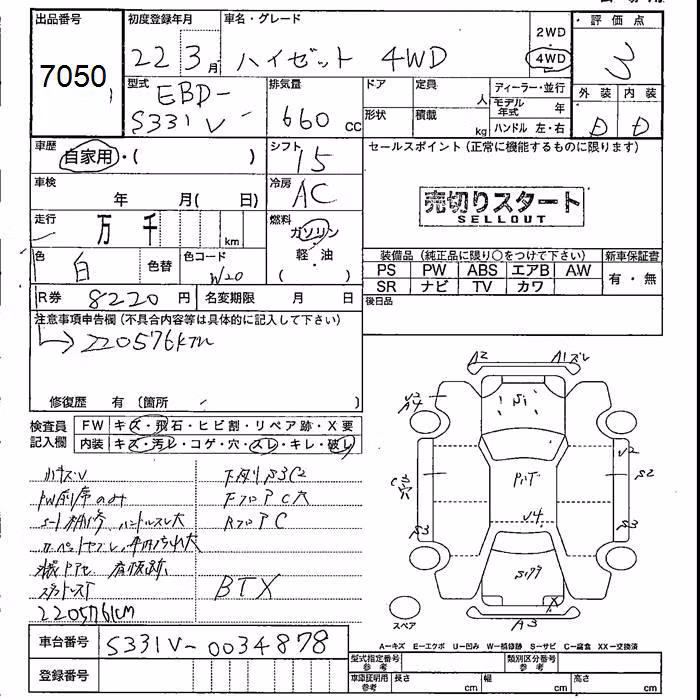 出品番号
7050
初度登録年月
22 3月
車名・グレード
ハイゼット 4WD
2WD
4WD
評価点
3
型式
EBD-
S331V
排気量
660 cc
ドア
定員
人
ディーラー・並行
モデル年式 年
形状
積載
kg
ハンドル 左・右
外装
内装
D D
車歴
自家用・( )
シフト
15
セールスポイント (正常に機能するものに限ります)
車検
年 月( 日)
冷房
AC
売切りスタート
SELLOUT
走行
万 千 km
燃料
ガソリン
・
軽・油
色
白
色替
色コード
W20
装備品 (純正品に限り○をつけて下さい)
新車保証書
PS PW ABS エアB AW
有・無
SR ナビ TV カワ
R券 8220 円
名変期限 月 日
後日品
注意事項申告欄 (不具合内容等は具体的に記入して下さい)
220576km
修復歴 有 (箇所
検査員
記入欄
FW キズ・飛石・ヒビ割・リペア跡・X要
内装 キズ・汚レ・コゲ・穴・スレ・キレ・破レ
小キズV
下廻りS3C2
FフロアC穴
ハンドルスレ大
RフロアC
BTX
220576km
車台番号
S331V-0034878
登録番号
A2
A1ズレ
A4
U2
S2
S3
S3
U4
X
A3
スペア
A-キズ E-エクボ U-凹み W-補修跡 S-サビ C-腐食 XX-交換済
型式指定番号
参考
類別区分番号
参考
車庫証明用
参考
長さ cm
幅 cm
高さ cm